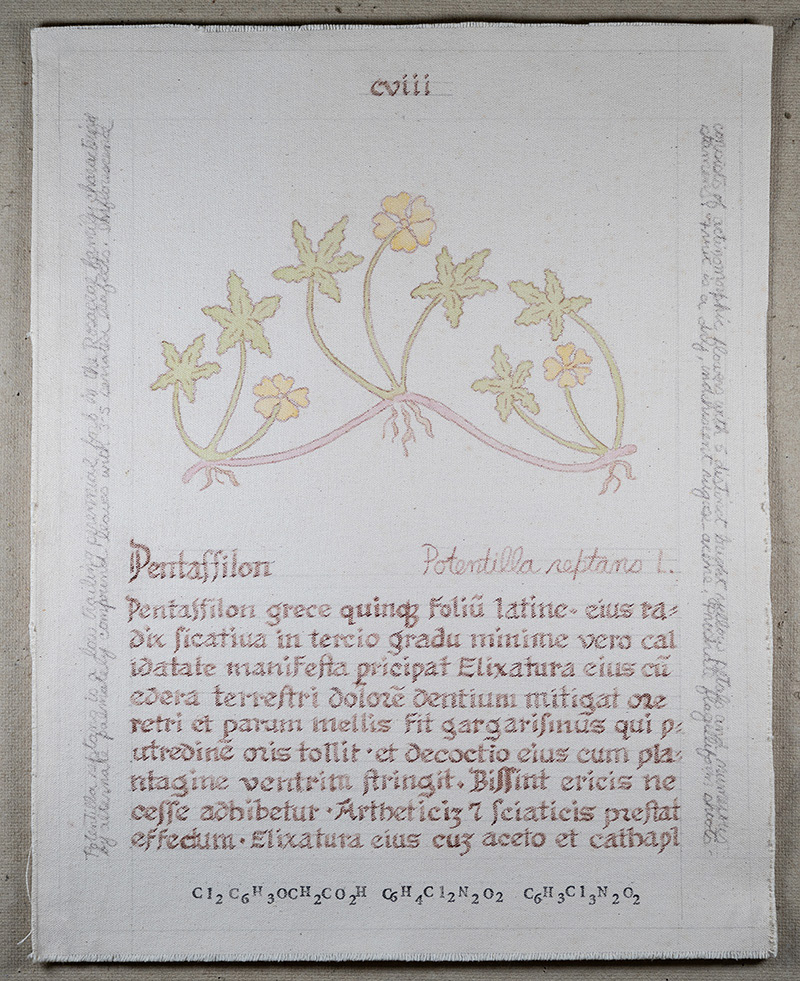 cviii
Pentaſſilon
Potentilla reptans L.
Pentaſſilon grece quinqꝫ foliū latine· eius ra⸗
dix ſicatiua in tercio gradu minime vero cal
idatate manifeſta pricipat Elixatura eius cū
edera terreſtri dolorē dentium mitigat ore
retri et parum mellis fit gargariſmus qui p⸗
utredinē oris tollit· et decoctio eius cum pla⸗
ntagine ventrim ſtringit. Biſſint ericis ne
ceſſe adhibetur· Artheticiꝫ ⁊ ſciaticis preſtat
effectum· Elixatura eius cuꝫ aceto et cathapl
Cl₂C₆H₃OCH₂CO₂H C₆H₄Cl₂N₂O₂ C₆H₃Cl₃N₂O₂
Potentilla reptans is a low, trailing perennial herb in the Rosaceae family, characterised
by alternate palmately compound leaves with 3-5 serrated leaflets. Inflorescence
consists of actinomorphic flowers with 5 distinct bright yellow petals and numerous
stamens. Fruit is a dry, indehiscent rugose achene. flagelliform shoots.